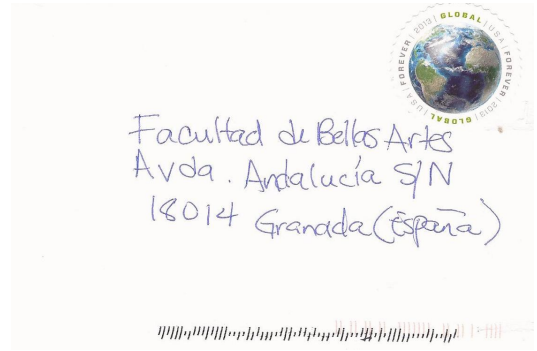 FOREVER | 2013 | GLOBAL | USA | FOREVER | 2013 | GLOBAL | USA
Facultad de Bellas Artes
Avda. Andalucía S/N
18014 Granada (España)